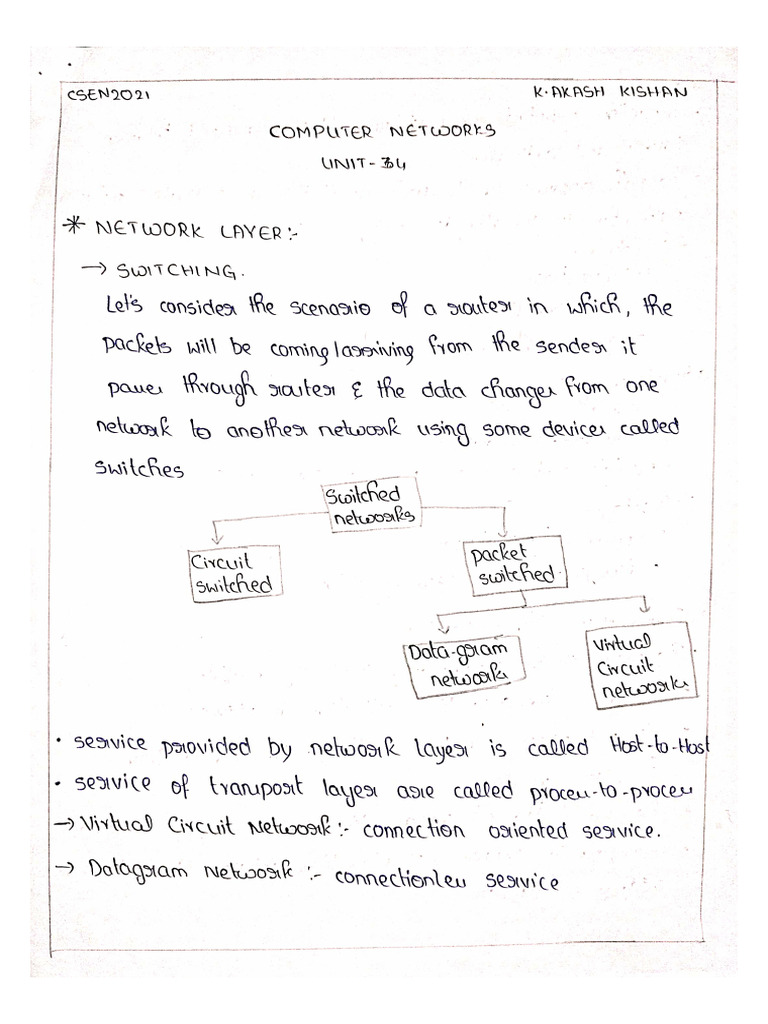 CSEN2021
K. AKASH KISHAN
COMPUTER NETWORKS
UNIT-34
* NETWORK LAYER:-
→ SWITCHING.
Let's consider the scenario of a router in which, the
packets will be coming/arriving from the sender it
passes through router & the data changes from one
network to another network using some devices called
switches
Switched
networks
Circuit
switched
packet
switched
Data-gram
networks
Virtual
Circuit
networks
• service provided by network layer is called Host-to-Host
• service of transport layer are called process-to-process
→ Virtual Circuit Network:- connection oriented service.
→ Datagram Network :- connectionless service